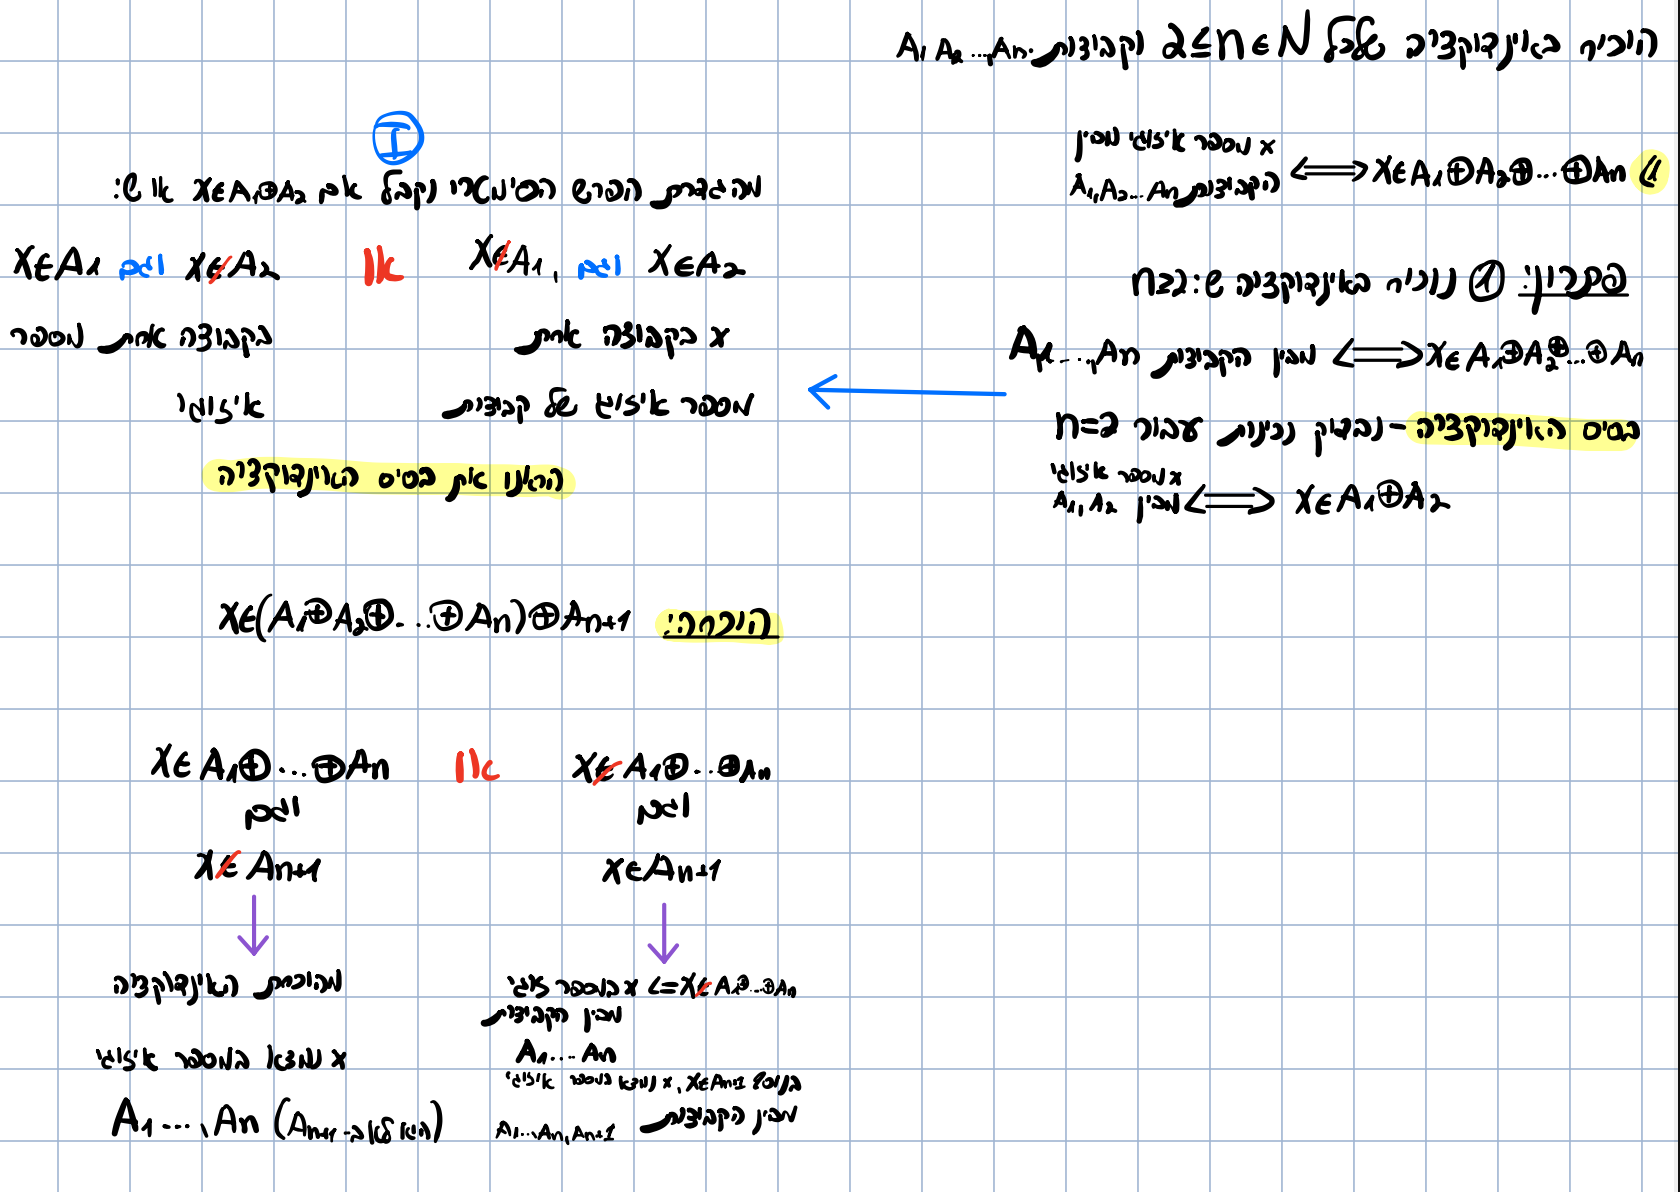 הוכיח באינדוקציה שלכל 2≤n∈N וקבוצות A₁, A₂ ...,An.
1) x∈A₁⊕A₂⊕...⊕An ⟺ x מספר איזוגי מבין
הקבוצות A₁,A₂...An
פתרון: ① נוכיח באינדוקציה ש: n≥2
x∈A₁⊕A₂⊕...⊕An ⟺ מבין הקבוצות A₁...,An
בסיס האינדוקציה - נבדוק נכונות עבור n=2
x∈A₁⊕A₂ ⟺ x מספר איזוגי
מבין A₁,A₂
I
מהגדרת הפרש הסימטרי נקבל אם x∈A₁⊕A₂ אז ש:
x∈A₂ וגם x∉A₁, או x∉A₂ וגם x∈A₁
x בקבוצה אחת
מספר איזוגי של קבוצות
בקבוצה אחת מספר
איזוגי
הראינו את בסיס האינדוקציה
הוכחה: x∈(A₁⊕A₂⊕...⊕An)⊕An+1
x∉A₁⊕...⊕An או x∈A₁⊕...⊕An
וגם
x∈An+1
וגם
x∉An+1
x∉A₁⊕...⊕An => x במספר זוגי
מבין הקבוצות
A₁...An
בנוסף x∈An+1, x נמצא במספר איזוגי
מבין הקבוצות A₁...An,An+1
מהוכחת האינדוקציה
x נמצא במספר איזוגי
A₁...,An (היא לא ב-An+1)